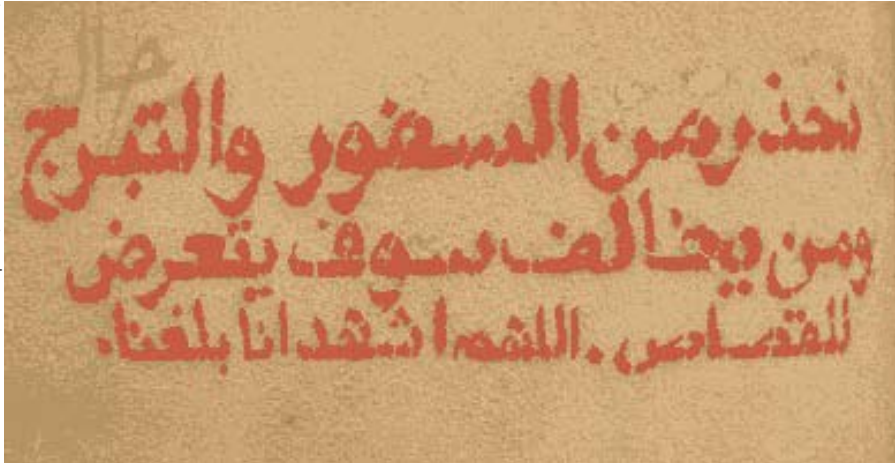 نحذر من السفور والتبرج
ومن يخالف سوف يتعرض
للقصاص . اللهم اشهد انا بلغنا .